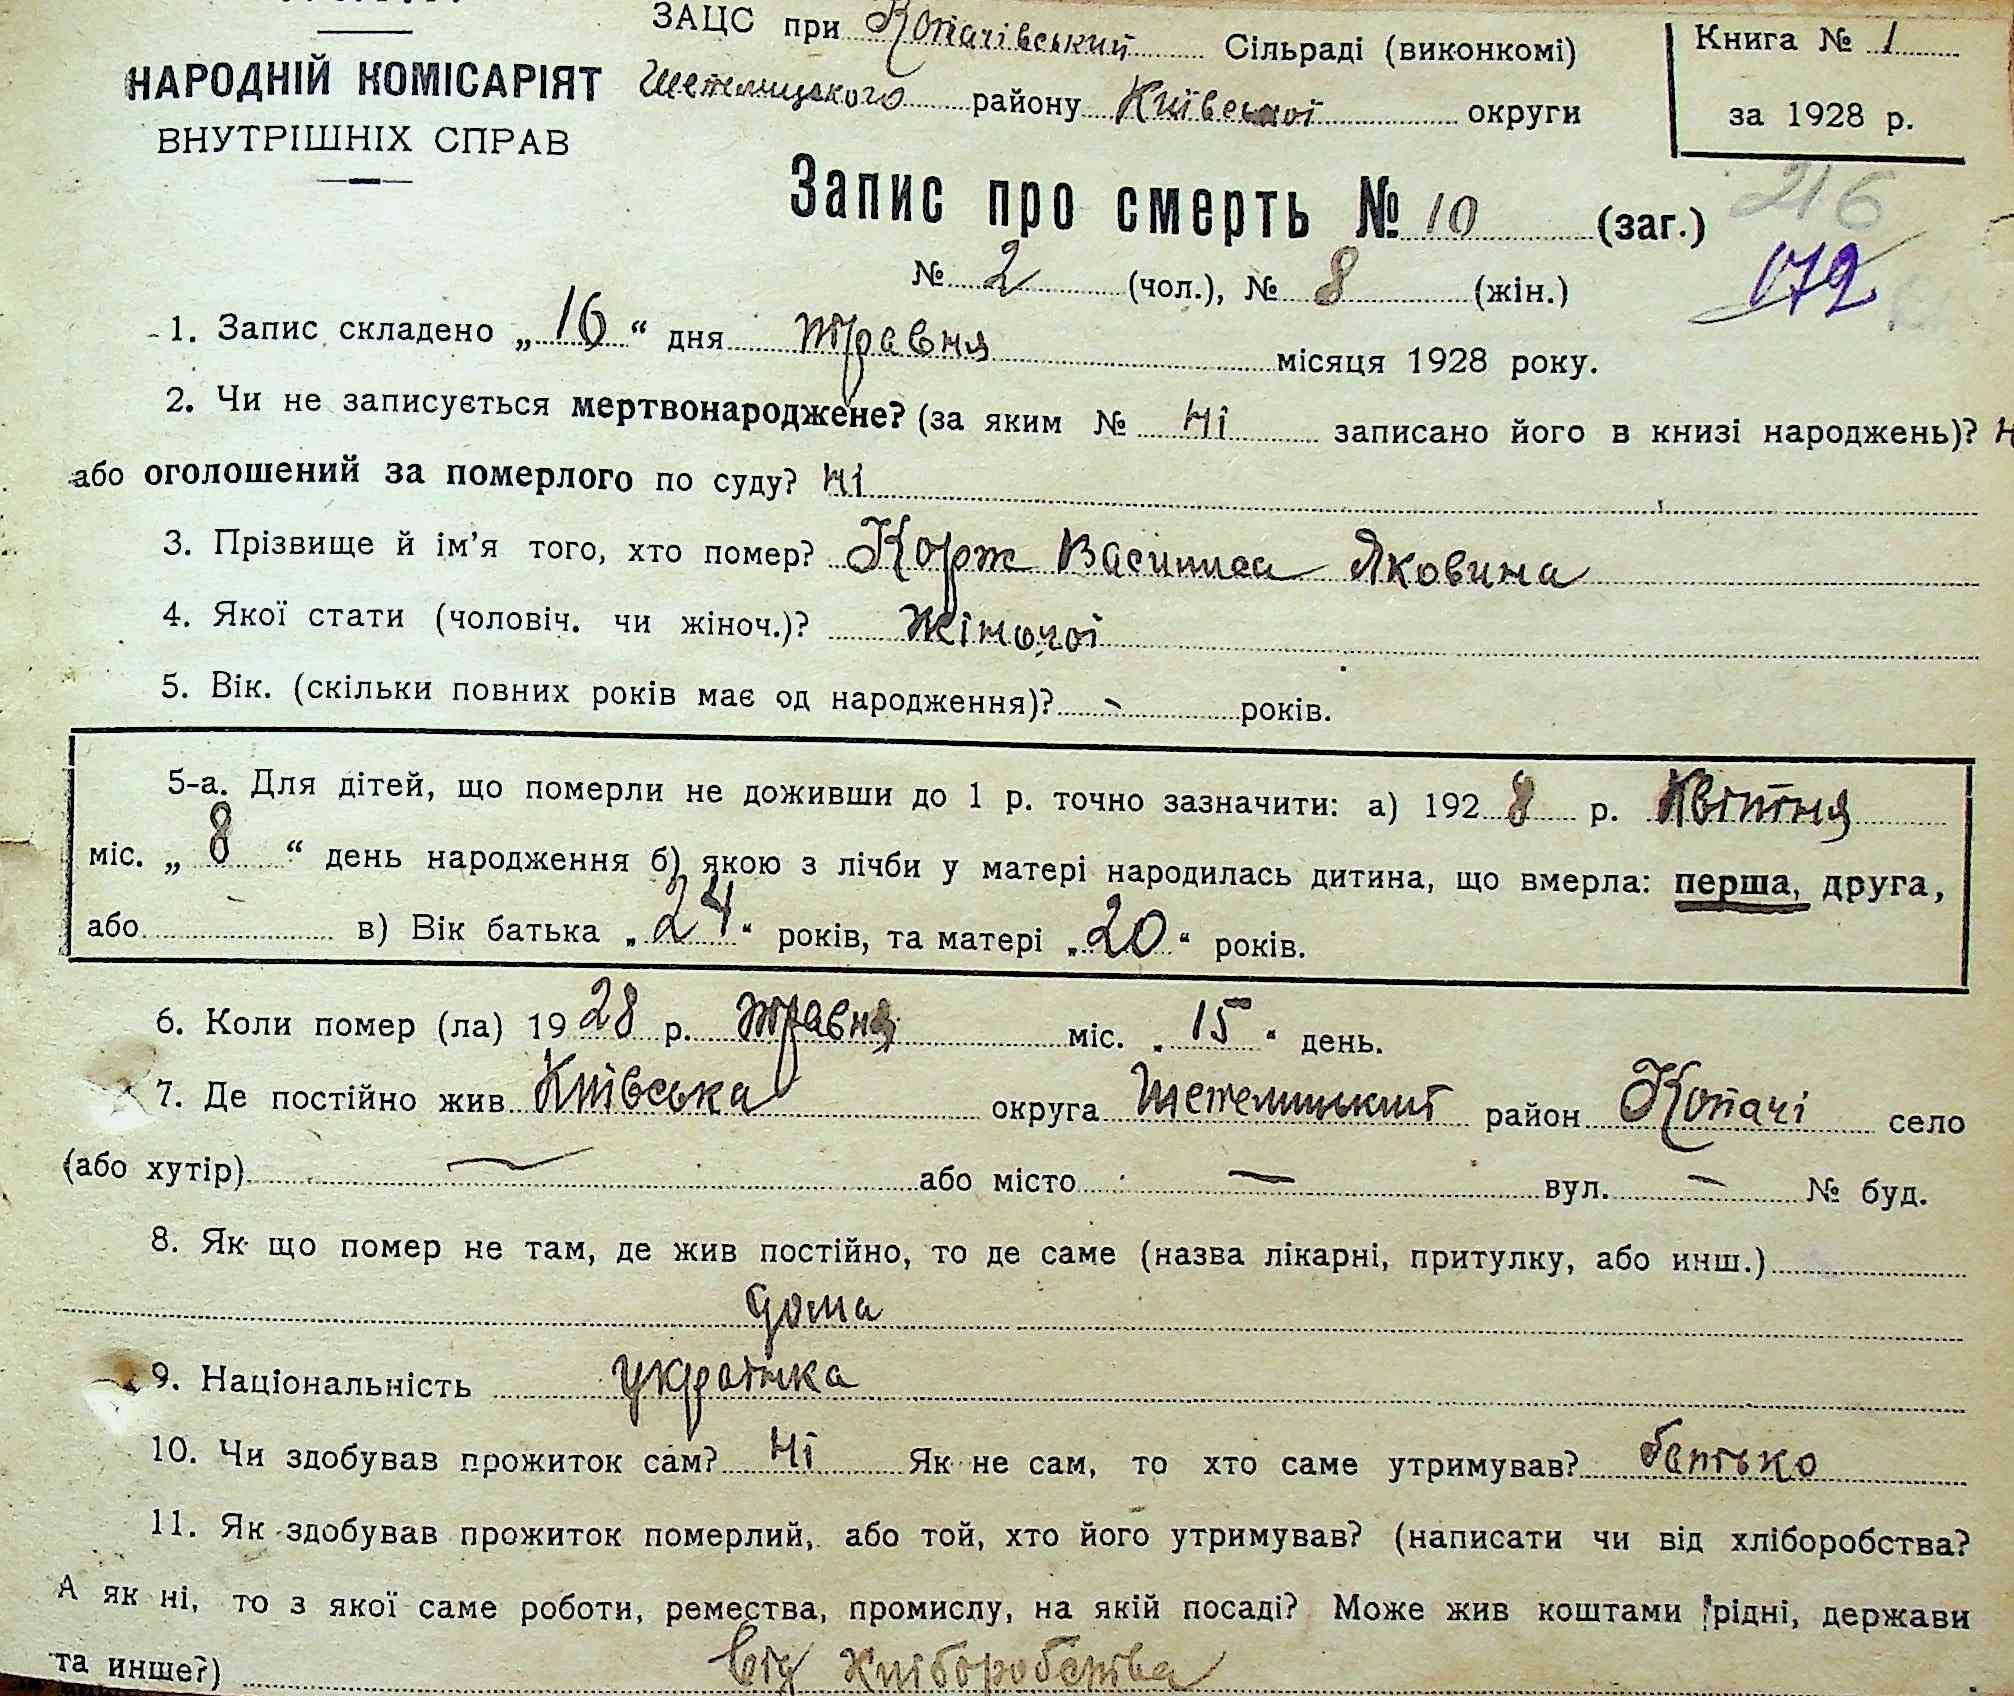 ЗАЦС при Копачівський Сільраді (виконкомі)
Книга № 1
НАРОДНІЙ КОМІСАРІЯТ
Шепелицького району Київської округи
за 1928 р.
ВНУТРІШНІХ СПРАВ
Запис про смерть № 10 (заг.)
216
№ 2 (чол.), № 8 (жін.)
172
1. Запис складено „16“ дня травня місяця 1928 року.
2. Чи не записується мертвонароджене? (за яким № Ні записано його в книзі народжень)?
або оголошений за померлого по суду? Ні
3. Прізвище й ім’я того, хто помер? Корж Василиса Яковина
4. Якої стати (чоловіч. чи жіноч.)? Жіночої
5. Вік. (скільки повних років має од народження)? - років.
5-а. Для дітей, що померли не доживши до 1 р. точно зазначити: а) 1928 р. Квітня
міс. „8“ день народження б) якою з лічби у матері народилась дитина, що вмерла: перша, друга,
або - в) Вік батька „24“ років, та матері „20“ років.
6. Коли помер (ла) 1928 р. травня міс. „15“ день.
7. Де постійно жив Київська округа Шепелицький район Копачі село
(або хутір) — або місто — вул. — № буд.
8. Як що помер не там, де жив постійно, то де саме (назва лікарні, притулку, або инш.)
дома
9. Національність українка
10. Чи здобував прожиток сам? Ні Як не сам, то хто саме утримував? батько
11. Як здобував прожиток померлий, або той, хто його утримував? (написати чи від хліборобства?
А як ні, то з якої саме роботи, ремества, промислу, на якій посаді? Може жив коштами рідні, держави
та инше?) Від хліборобства